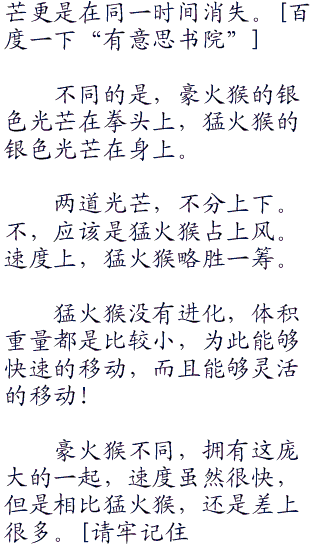 芒更是在同一时间消失。[百
度一下“有意思书院”]
不同的是，豪火猴的银
色光芒在拳头上，猛火猴的
银色光芒在身上。
两道光芒，不分上下。
不，应该是猛火猴占上风。
速度上，猛火猴略胜一筹。
猛火猴没有进化，体积
重量都是比较小，为此能够
快速的移动，而且能够灵活
的移动！
豪火猴不同，拥有这庞
大的一起，速度虽然很快，
但是相比猛火猴，还是差上
很多。[请牢记住